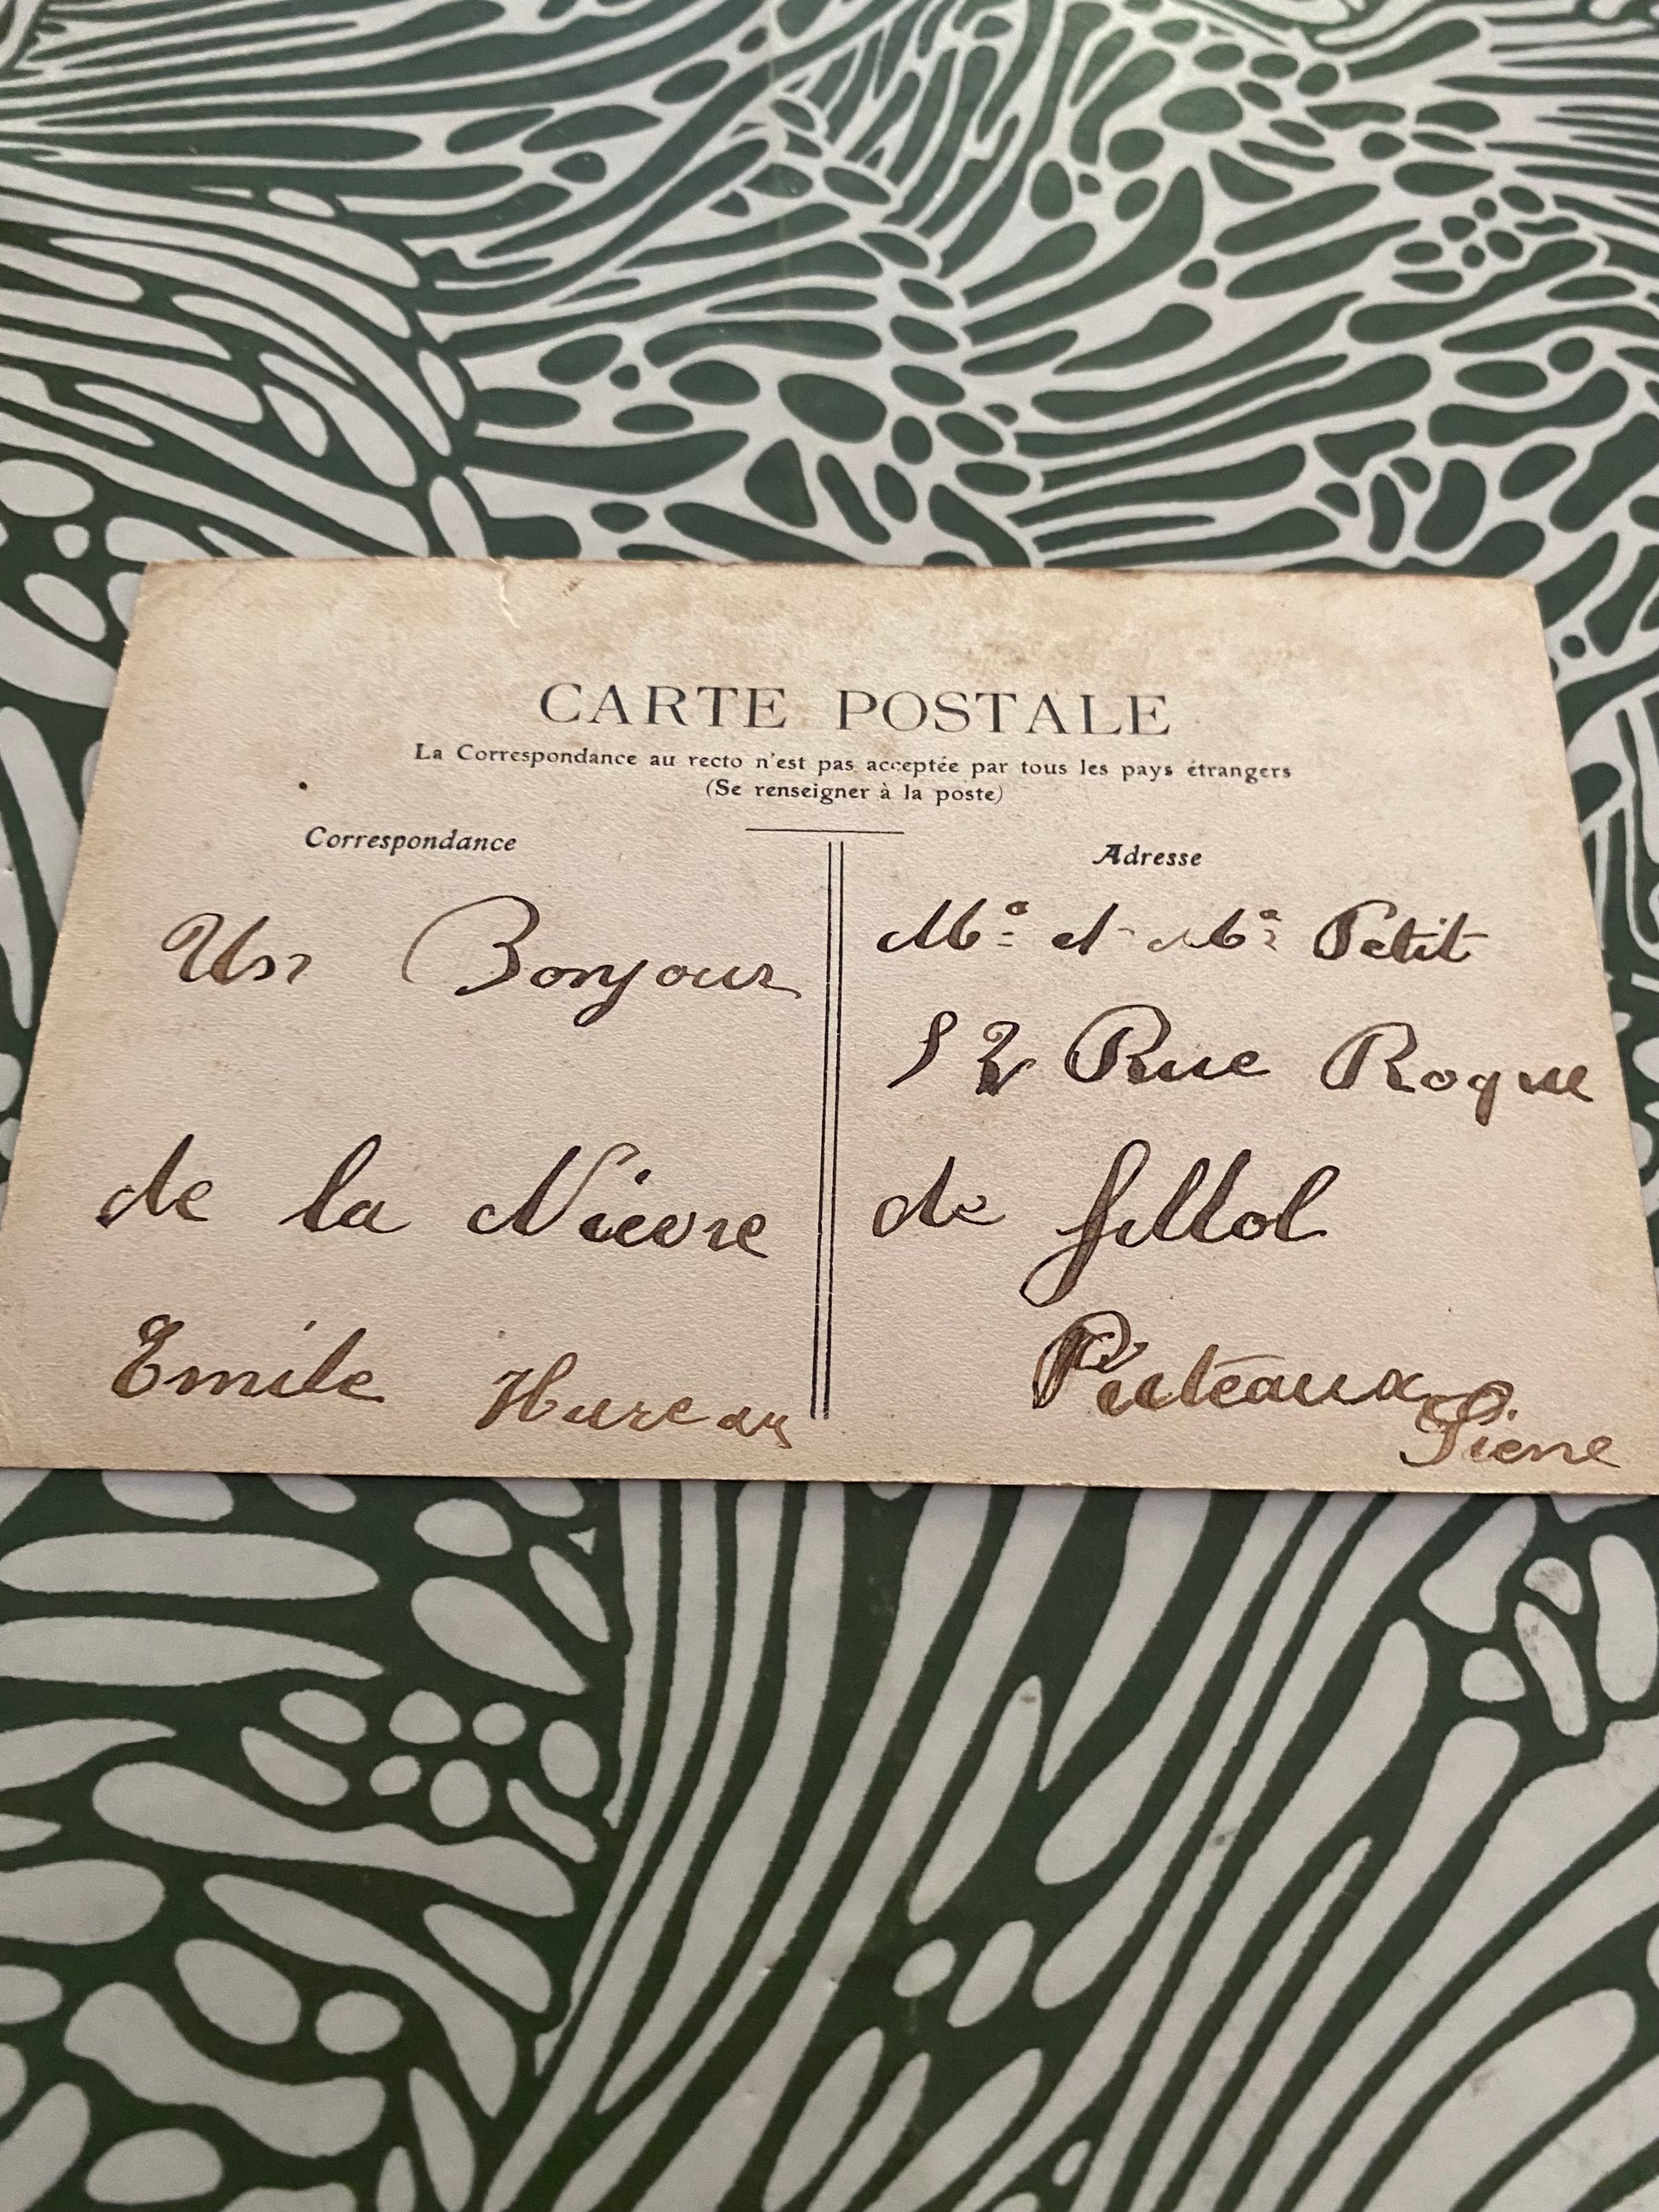 CARTE POSTALE
La Correspondance au recto n'est pas acceptée par tous les pays étrangers
(Se renseigner à la poste)
Correspondance
Un Bonjour
de la Nièvre
Emile Hureau
Adresse
Mr et Mr Petit
52 Rue Roque
de fillol
Puteaux
Siene